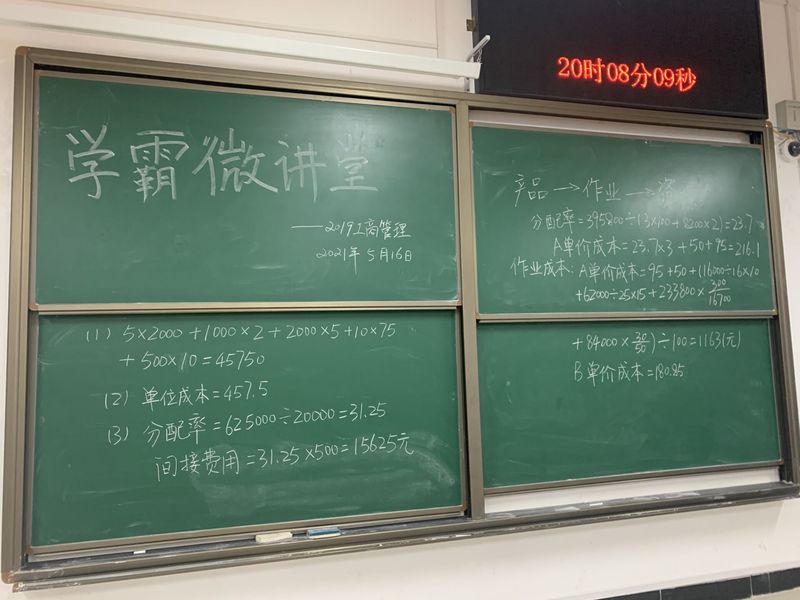 20时08分09秒
学霸微讲堂
——2019工商管理
2021年5月16日
(1) 5×2000+1000×2+2000×5+10×75
+500×10=45750
(2) 单位成本=457.5
(3) 分配率=625000÷20000=31.25
间接费用=31.25×500=15625元
产品→作业→资
分配率=395800÷(3×100+8200×2)=23.7
A单价成本=23.7×3+50+95=216.1
作业成本:A单价成本=95+50+(16000÷16×10
+62000÷25×15+233800×300/16700
+84000×30/50)÷100=1163(元)
B单价成本=180.85